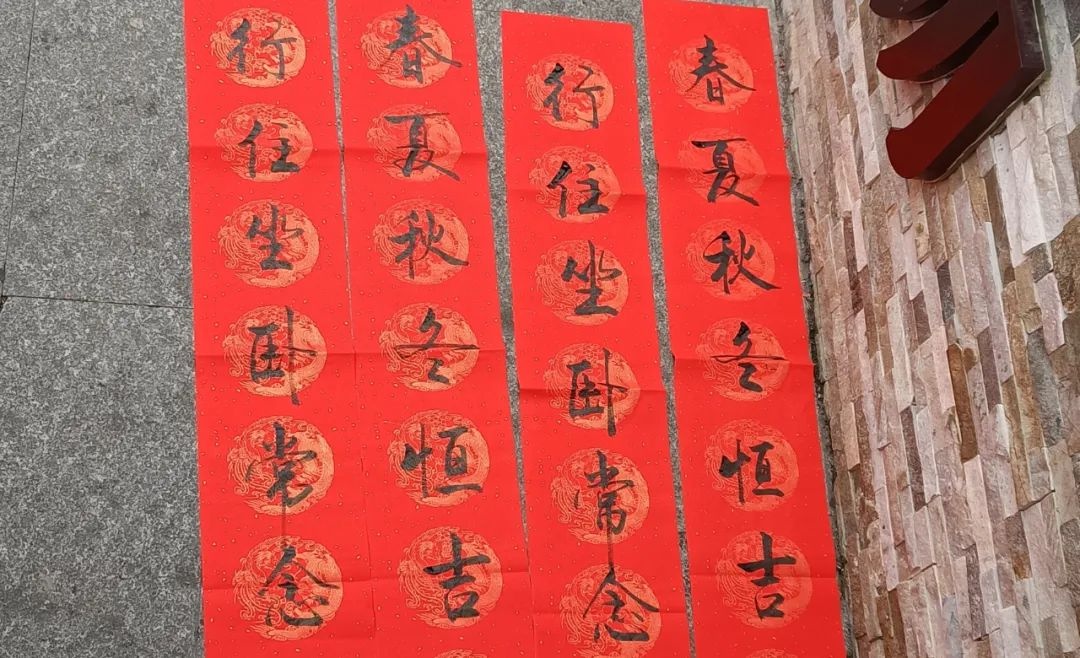 春夏秋冬恒吉
行住坐卧常念
春夏秋冬恒吉
行住坐卧常念